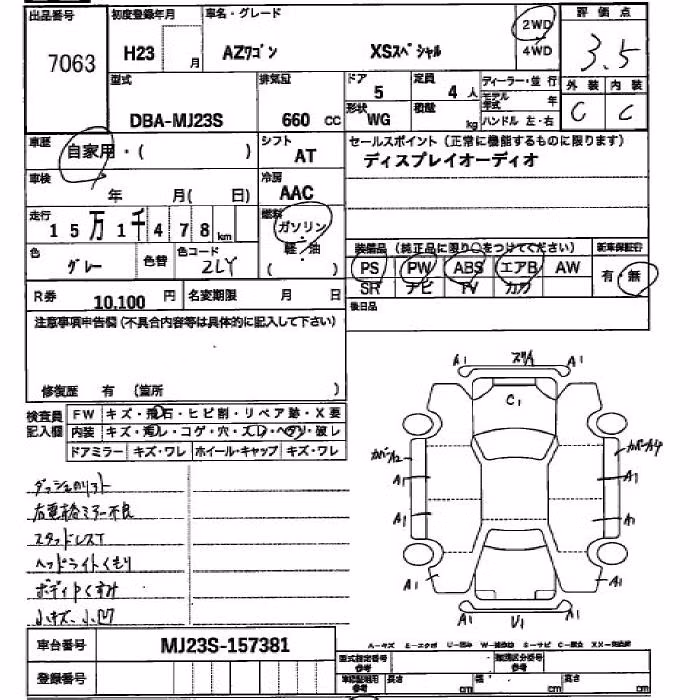 出品番号 初度登録年月 車名・グレード 2WD 評価点
7063 H23 月 AZワゴン XSスペシャル 4WD 3.5
型式 排気量 ドア 定員 ディーラー・並行 外装 内装
5 4人 モデル年式 年
DBA-MJ23S 660 CC 形状 WG 積載 kg ハンドル 左・右 C C
車歴 自家用・( ) シフト AT セールスポイント(正常に機能するものに限ります)
ディスプレイオーディオ
車検 年 月( 日) 冷房 AAC
走行 15万1千478km 燃料 ガソリン・軽油 ( )
色 グレー 色替 色コード ZLY
装備品(純正品に限り○をつけてください) 新車保証書
PS PW ABS エアB AW 有・無
SR ナビ TV カワ
R券 10,100円 名変期限 月 日 後日品
注意事項申告欄(不具合内容等は具体的に記入して下さい)
修復歴 有 (箇所 )
検査員記入欄 FW キズ・飛石・ヒビ割・リペア跡・X要
内装 キズ・汚レ・コゲ・穴・ズレ・ヘタリ・破レ
ドアミラー キズ・ワレ ホイール・キャップ キズ・ワレ
A1 スリA A1
C1
カバーA2
A1 A1
A1 A1
A1 A1
A1 U1 A1
右電格ミラー不良
スタッドレスT
ヘッドライトくもり
小キズ、小凹
車台番号 MJ23S-157381
型式指定番号 類別区分番号
登録番号 長さ cm 幅 cm 高さ cm